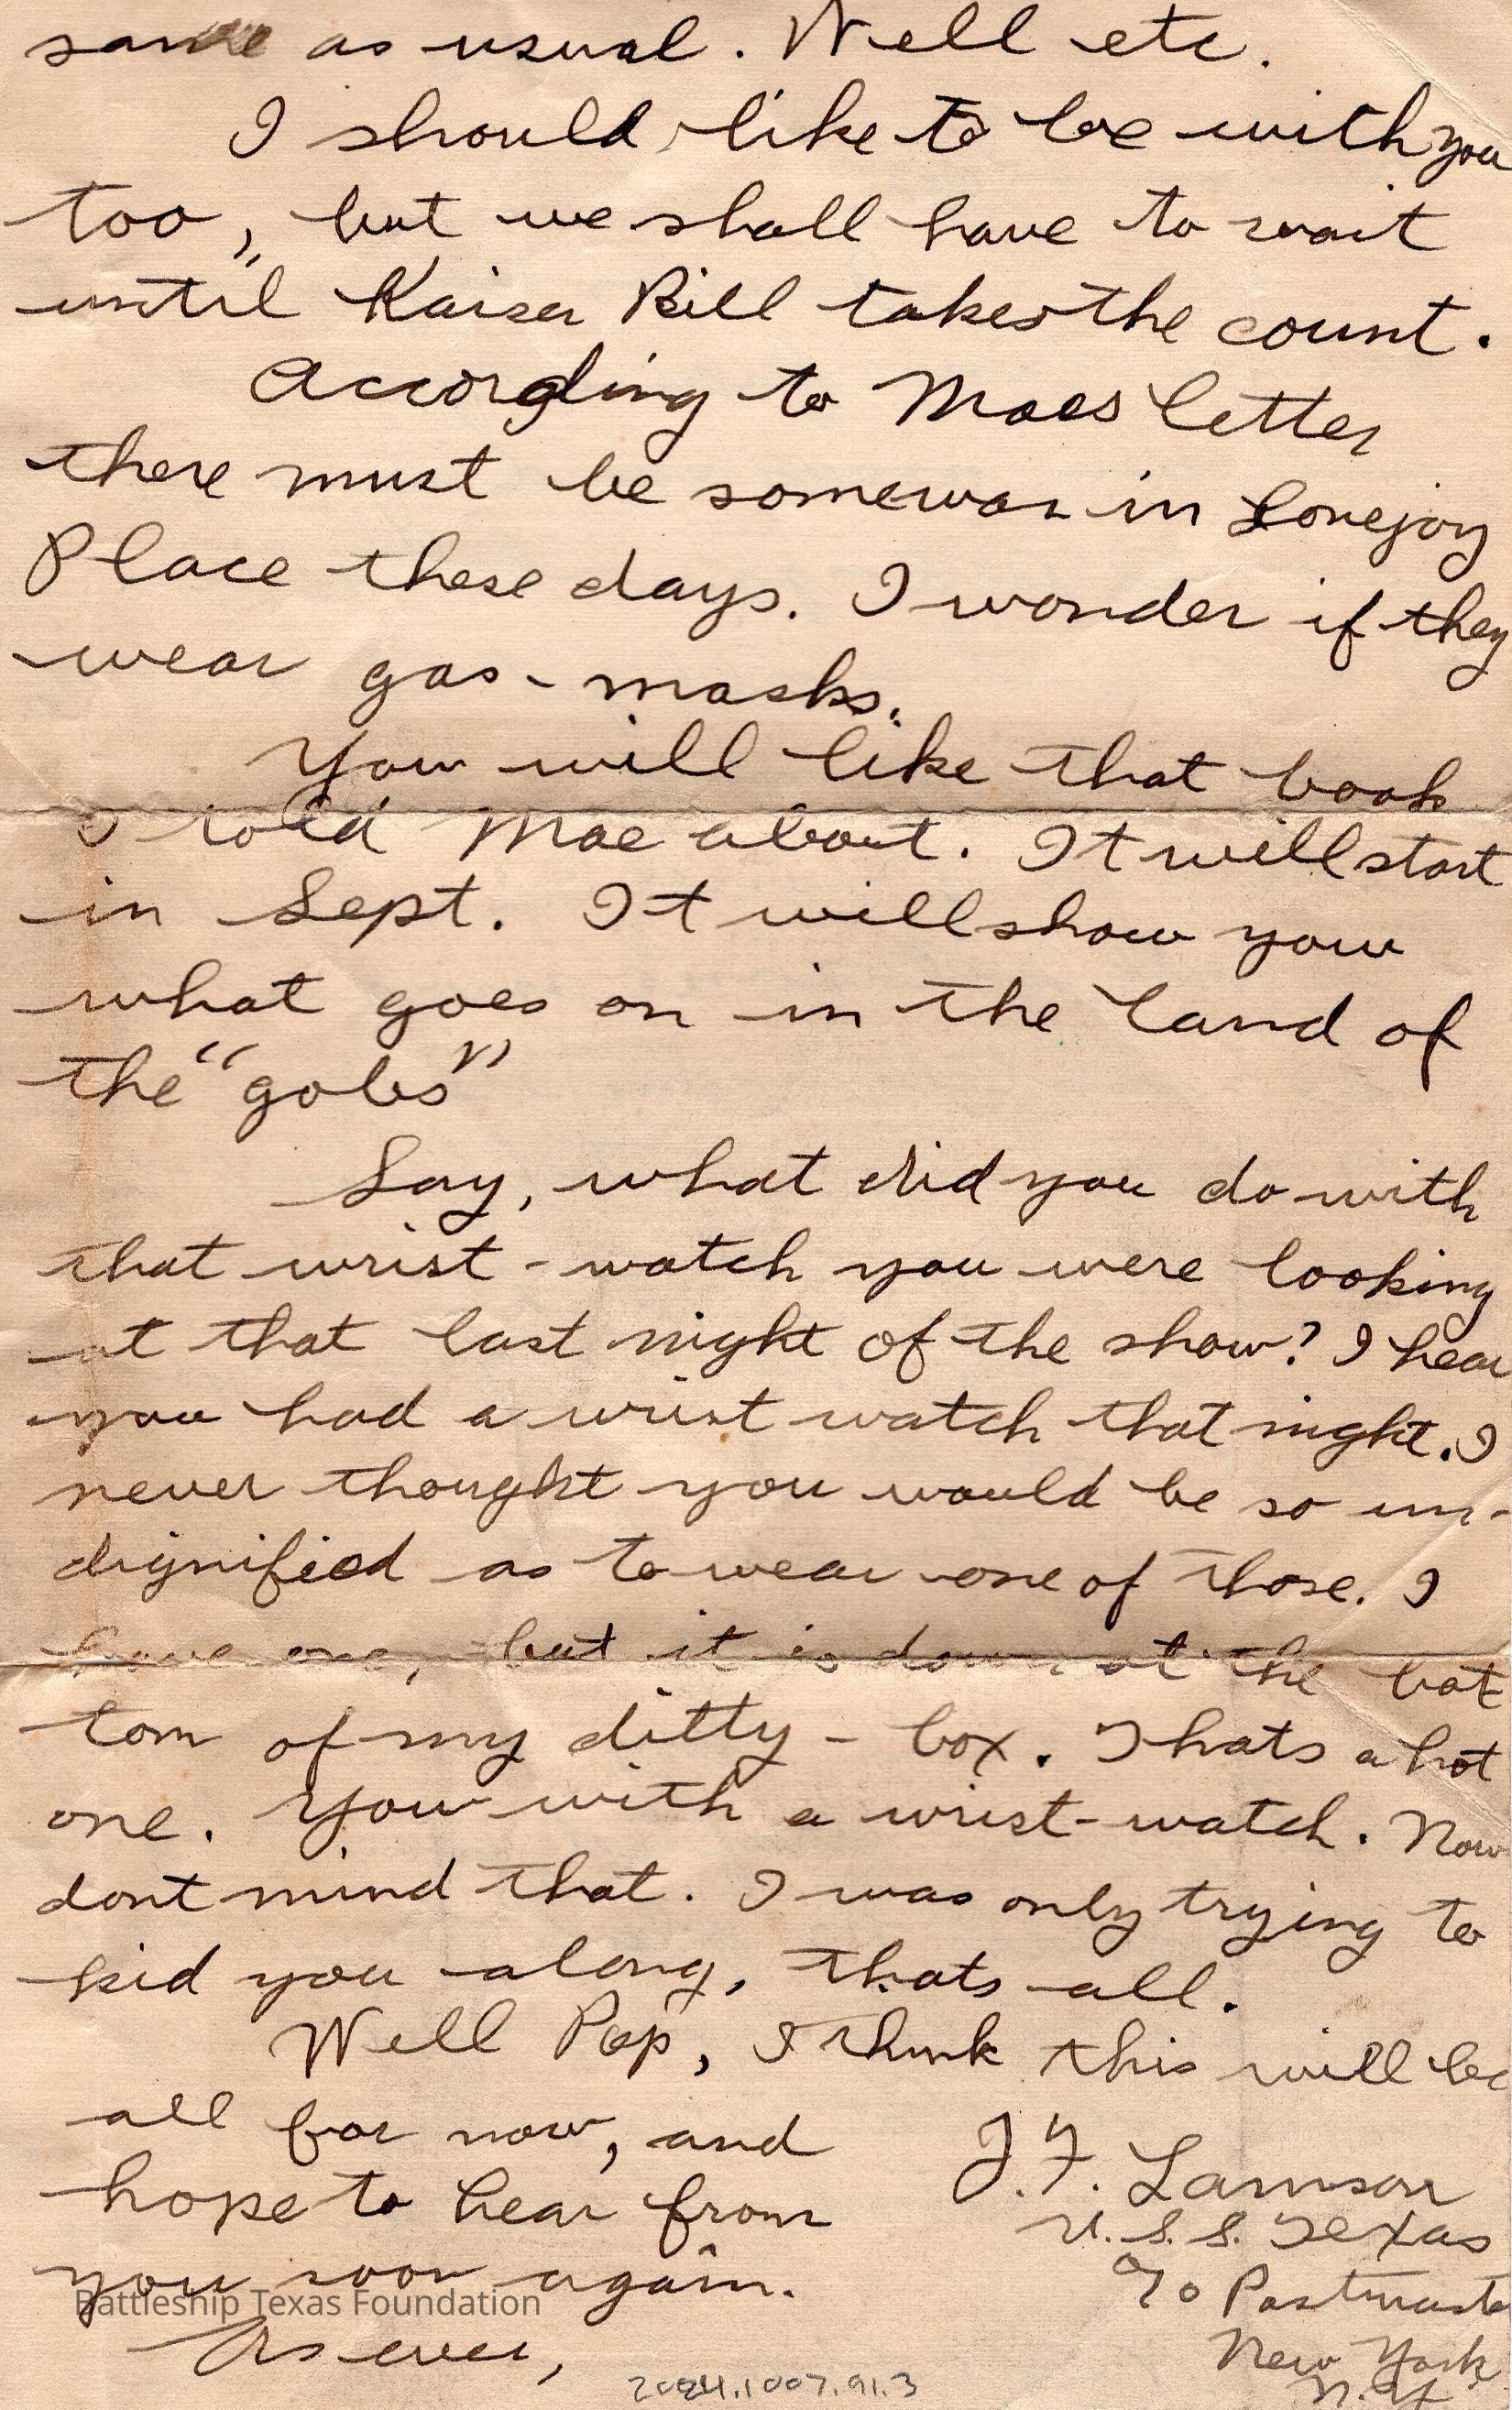 same as usual. Well etc.
I should like to be with you
too, but we shall have to wait
until Kaiser Bill takes the count.
According to Maes letter
there must be some war in Lovejoy
Place these days. I wonder if they
wear gas-masks.
You will like that book
I told Mae about. It will start
in Sept. It will show you
what goes on in the land of
the "gobs"
Say, what did you do with
that wrist-watch you were looking
at that last night of the show? I hear
you had a wrist watch that night. I
never thought you would be so un-
dignified as to wear one of those. I
have one, but it is down at the bot
tom of my ditty-box. Thats a hot
one. You with a wrist-watch. Now
dont mind that. I was only trying to
kid you along, thats all.
Well Pop, I think this will be
all for now, and
hope to hear from
you soon again.
As ever,
J.F. Lamson
U.S.S. Texas
c/o Postmaster
New York
N.Y.
Battleship Texas Foundation
2024.1007.91.3